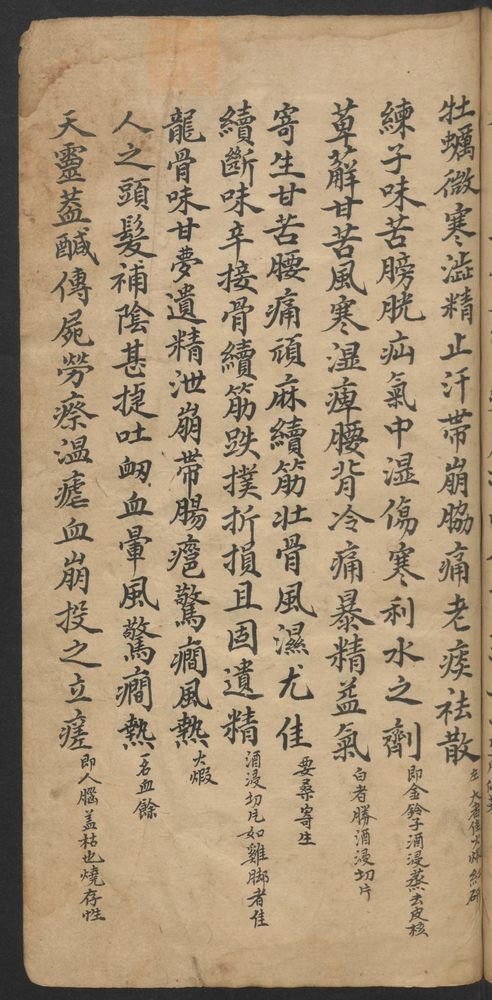 牡蠣微寒澁精止汗帶崩脇痛老痰祛散 左大者佳火煅細研
練子味苦膀胱疝氣中湿傷寒利水之劑 即金鈴子酒浸蒸去皮核
萆薢甘苦風寒湿痺腰背冷痛暴精益氣 白者勝酒浸切片
寄生甘苦腰痛頑麻續筋壯骨風濕尤佳 要桑寄生
續斷味辛接骨續筋跌撲折損且固遺精 酒浸切片如雞脚者佳
龍骨味甘夢遺精泄崩帶腸癰驚癎風熱 火煅
人之頭髮補陰甚捷吐衂血暈風驚癎熱 一名血餘
天靈蓋醎傳屍勞瘵温瘧血崩投之立瘥 即人腦盖枯也燒存性